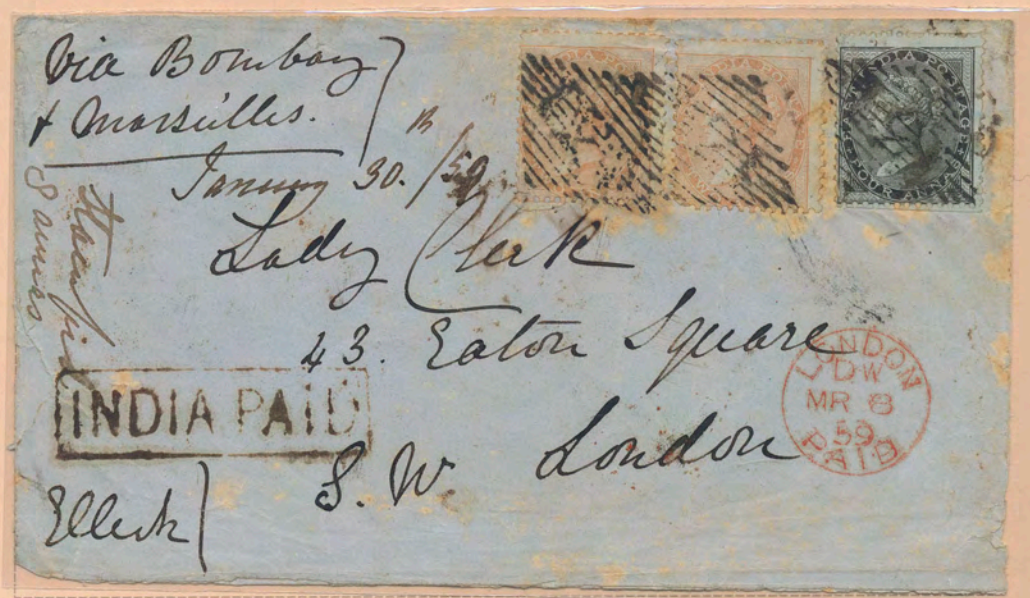 Via Bombay
& Marseilles.
January 30./59
8 annas
Lady Clerk
43. Eaton Square
S. W. London
INDIA PAID
LONDON
DW
MR 8
59
PAID
INDIA POSTAGE
FOUR ANNAS